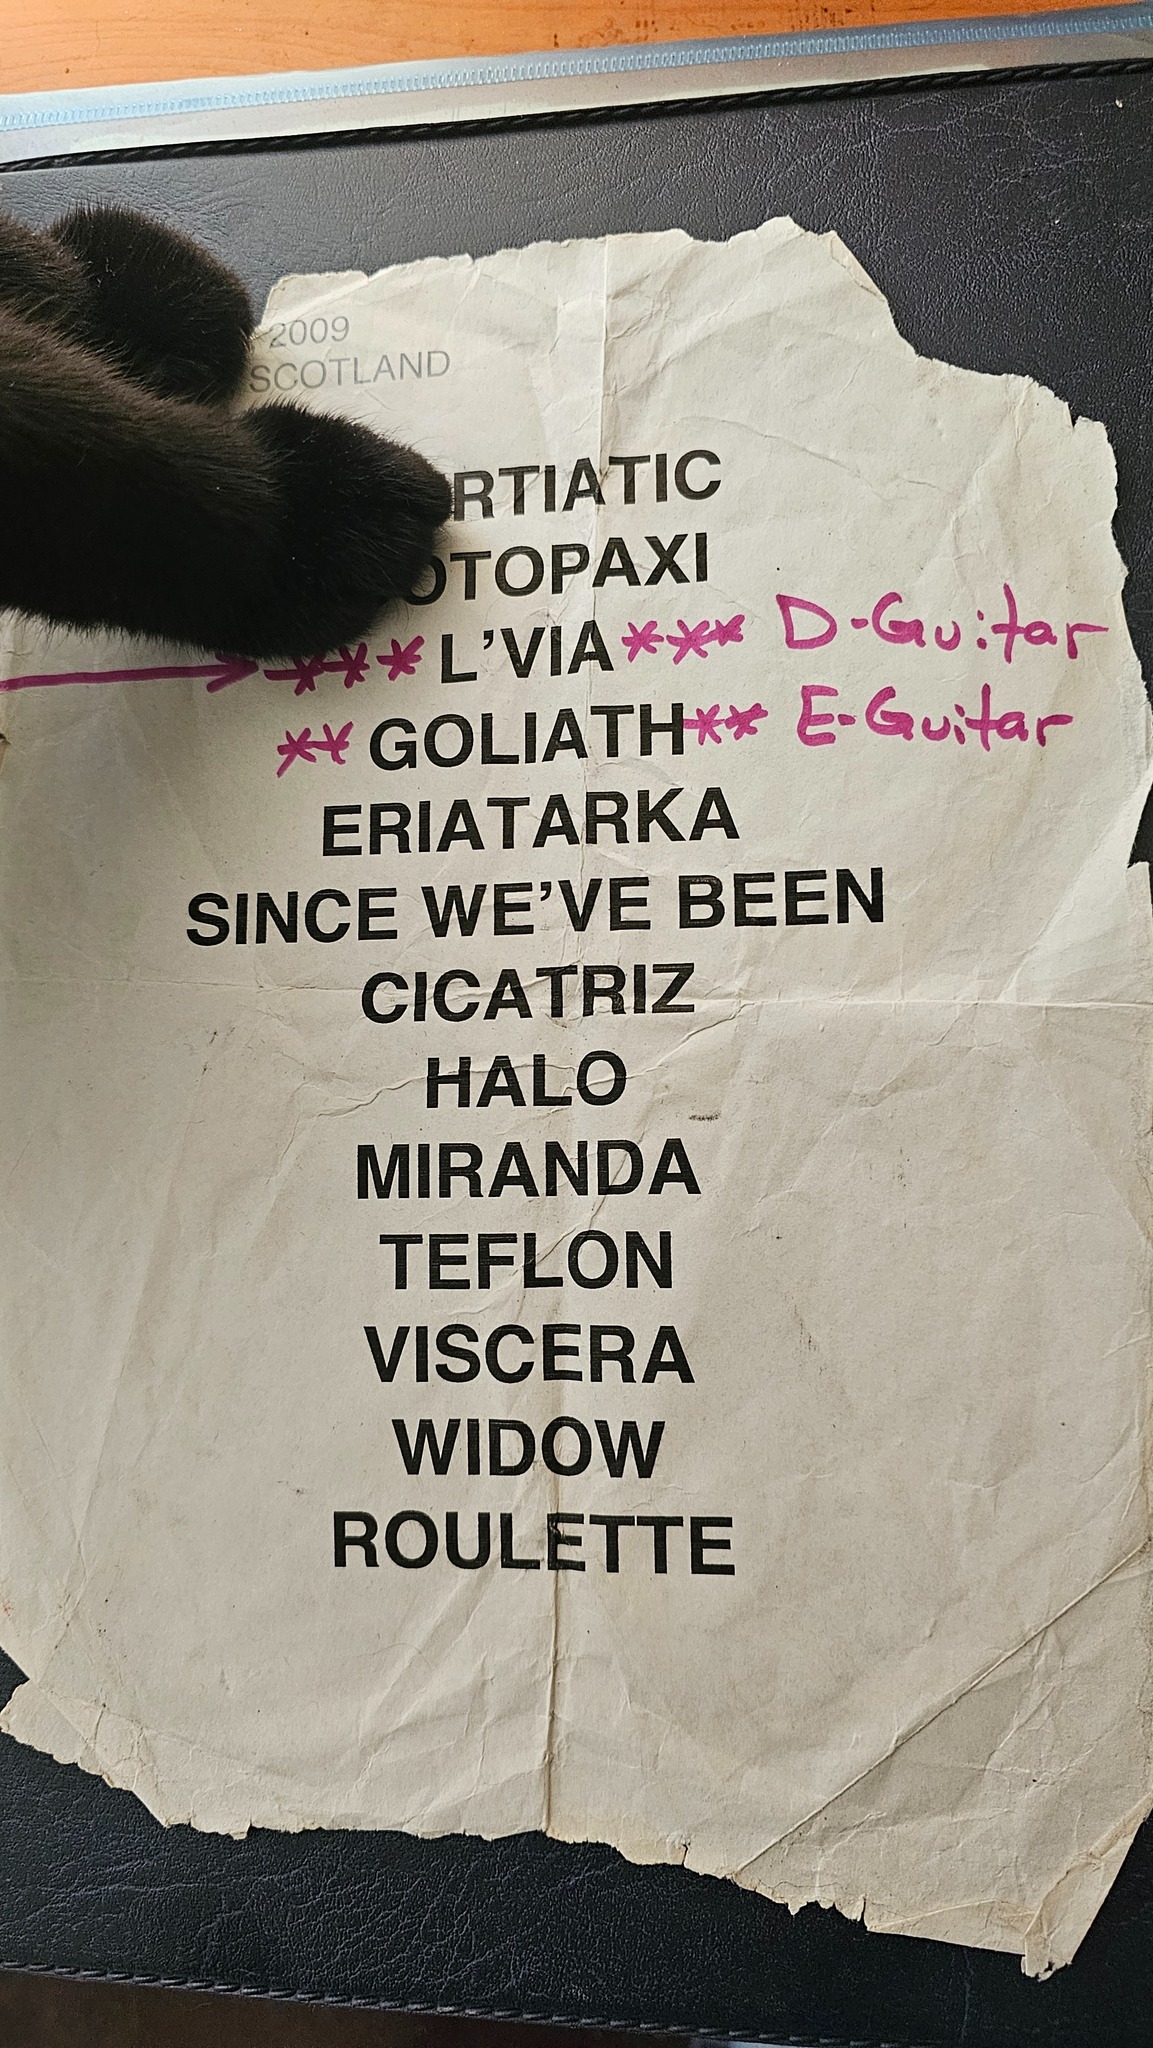 2009
SCOTLAND
RTIATIC
OTOPAXI
*** L'VIA *** D-Guitar
** GOLIATH ** E-Guitar
ERIATARKA
SINCE WE'VE BEEN
CICATRIZ
HALO
MIRANDA
TEFLON
VISCERA
WIDOW
ROULETTE